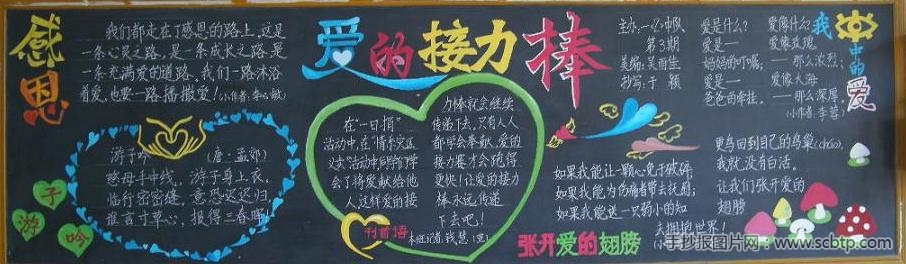 感恩
我们都走在了感恩的路上，这是
一条心灵之路，是一条成长之路，是
一条充满爱的道路，我们一路沐浴
着爱，也要一路播撒爱！
游子吟
游子吟 （唐·孟郊）
慈母手中线，游子身上衣。
临行密密缝，意恐迟迟归。
谁言寸草心，报得三春晖。
爱的接力棒
在“一日捐”
活动中，在“情系灾区
会了将爱献给他
人这样爱的接
力棒就会继续
传递下去。只有人人
都学会奉献，爱的
接力赛才会跑得
更快！让爱的接力
棒永远传递
下去吧！
刊首语
主办：一（2）中队
第3期
美编：吴雨生
抄写：于颖
爱是什么？
爱是——
妈妈的叮嘱，
爱是——
爸爸的牵挂。
爱像什么？
爱像玫瑰
——那么浓烈，
爱像大海
——那么深厚。
我心中的爱
如果我能让一颗心免于破碎，
如果我能为伤痛者带去抚慰，
如果我能送一只弱小的知
更鸟回到自己的鸟巢(cháo)，
我就没有白活。
让我们张开爱的
翅膀
去拥抱世界！
张开爱的翅膀
手抄报图片网：www.scbtp.com